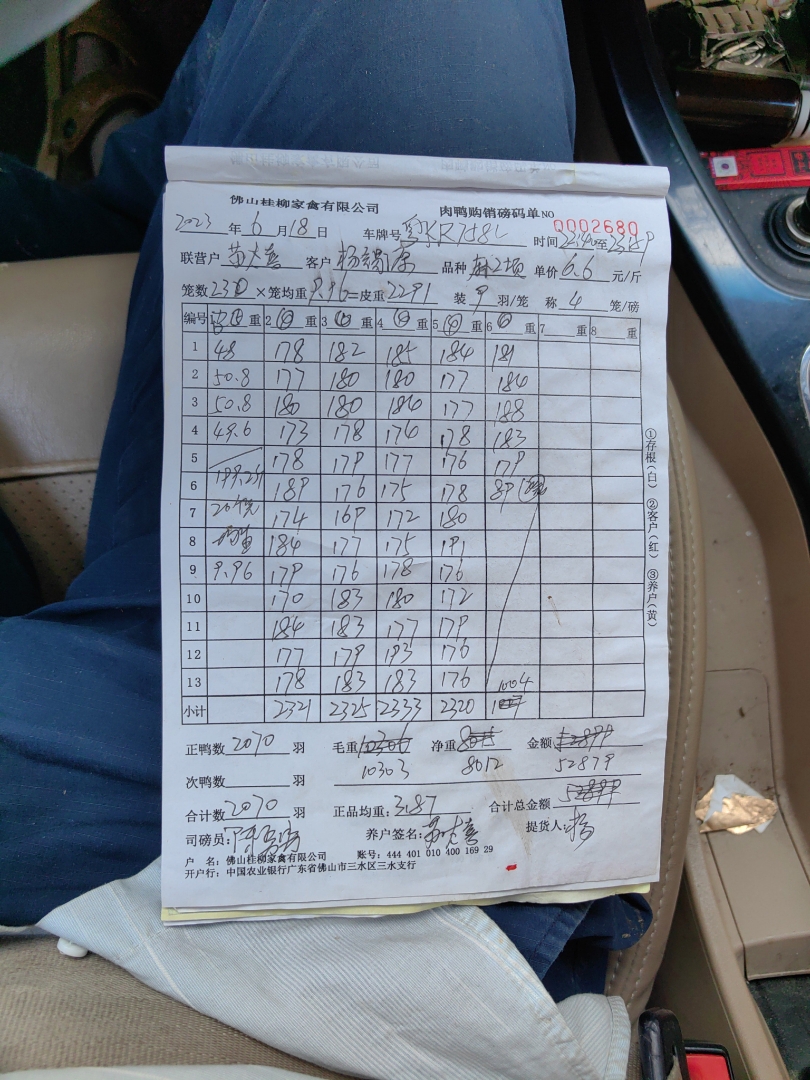 佛山桂柳家禽有限公司 肉鸭购销磅码单 NO 0002680
2023 年 6 月 18 日 车牌号 时间
联营户 客户 品种 单价 6.6 元/斤
笼数 230 ×笼均重 9.96 =皮重 2291 装 9 羽/笼 称 4 笼/磅
编号 重 2 重 3 重 4 重 5 重 6 重 7 重 8 重
1 48 178 182 185 184 181
2 50.8 177 180 180 177 184
3 50.8 180 180 184 177 188
4 49.6 173 178 176 178 183
5 178 179 177 176 179
6 189 176 175 178 89
7 174 169 172 180
8 184 177 175 191
9 9.96 179 176 178 176
10 170 183 180 172
11 184 183 177 179
12 177 179 193 176
13 178 183 183 176
小计 2321 2325 2333 2320 1004
正鸭数 2070 羽 毛重 净重 金额
10303 8012 52879
次鸭数 羽
合计数 2070 羽 正品均重: 3.87 合计总金额
司磅员: 养户签名: 提货人: 杨
户 名: 佛山桂柳家禽有限公司 账号: 444 401 010 400 169 29
开户行: 中国农业银行广东省佛山市三水区三水支行
①存根(白) ②客户(红) ③养户(黄)